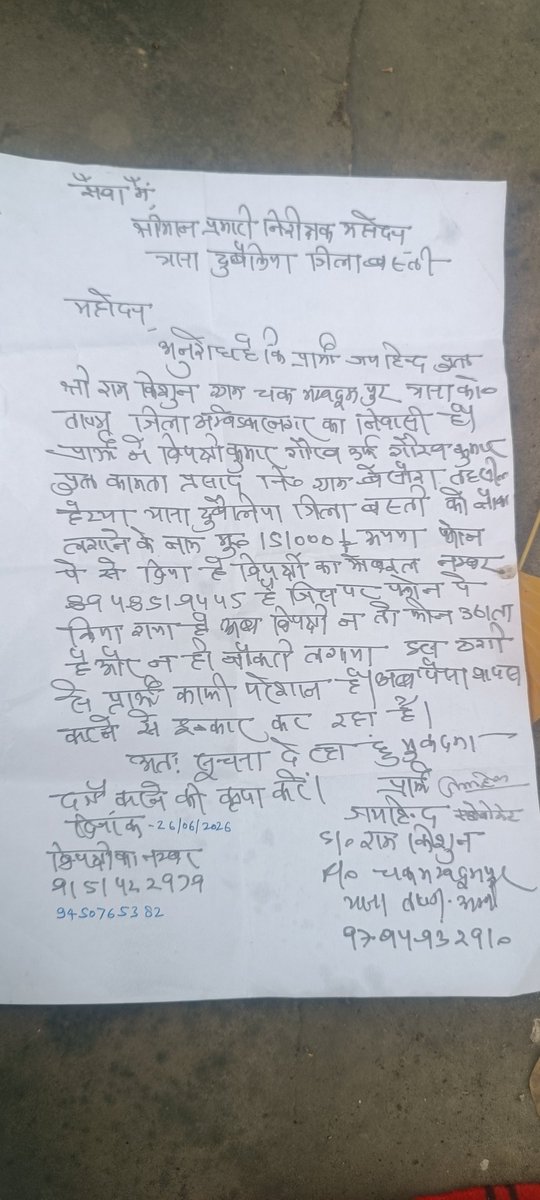 सेवा में,
श्रीमान प्रभारी निरीक्षक महोदय
थाना दुबौलिया जिला बस्ती
महोदय,
अनुरोध है कि प्रार्थी जयहिन्द पुत्र
श्री राम किशुन ग्राम चक मखदूमपुर थाना को०
जिला अम्बेडकरनगर का निवासी है।
प्रार्थी ने विपक्षी कुमार गौरव उर्फ गौरव कुमार
पुत्र कामता प्रसाद नि० ग्राम तहसील
हरैया थाना दुबौलिया जिला बस्ती को
लगाने के नाम मु० 151000/- रूपया फोन
पे से दिया है विपक्षी का मोबाइल नम्बर
8948519445 है जिसपर फोन पे
किया गया है अब विपक्षी न तो फोन उठाता
है और न ही नौकरी लगाया इस ठगी
से प्रार्थी काफी परेशान है। अब पैसा वापस
करने से इन्कार कर रहा है।
अतः सूचना दे रहा हूं मुकदमा
दर्ज करने की कृपा करें।
प्रार्थी
दिनांक - 26/06/2026
जयहिन्द
S/o राम किशुन
विपक्षी का नम्बर
R/o चक मखदूमपुर
9151422979
9450765382